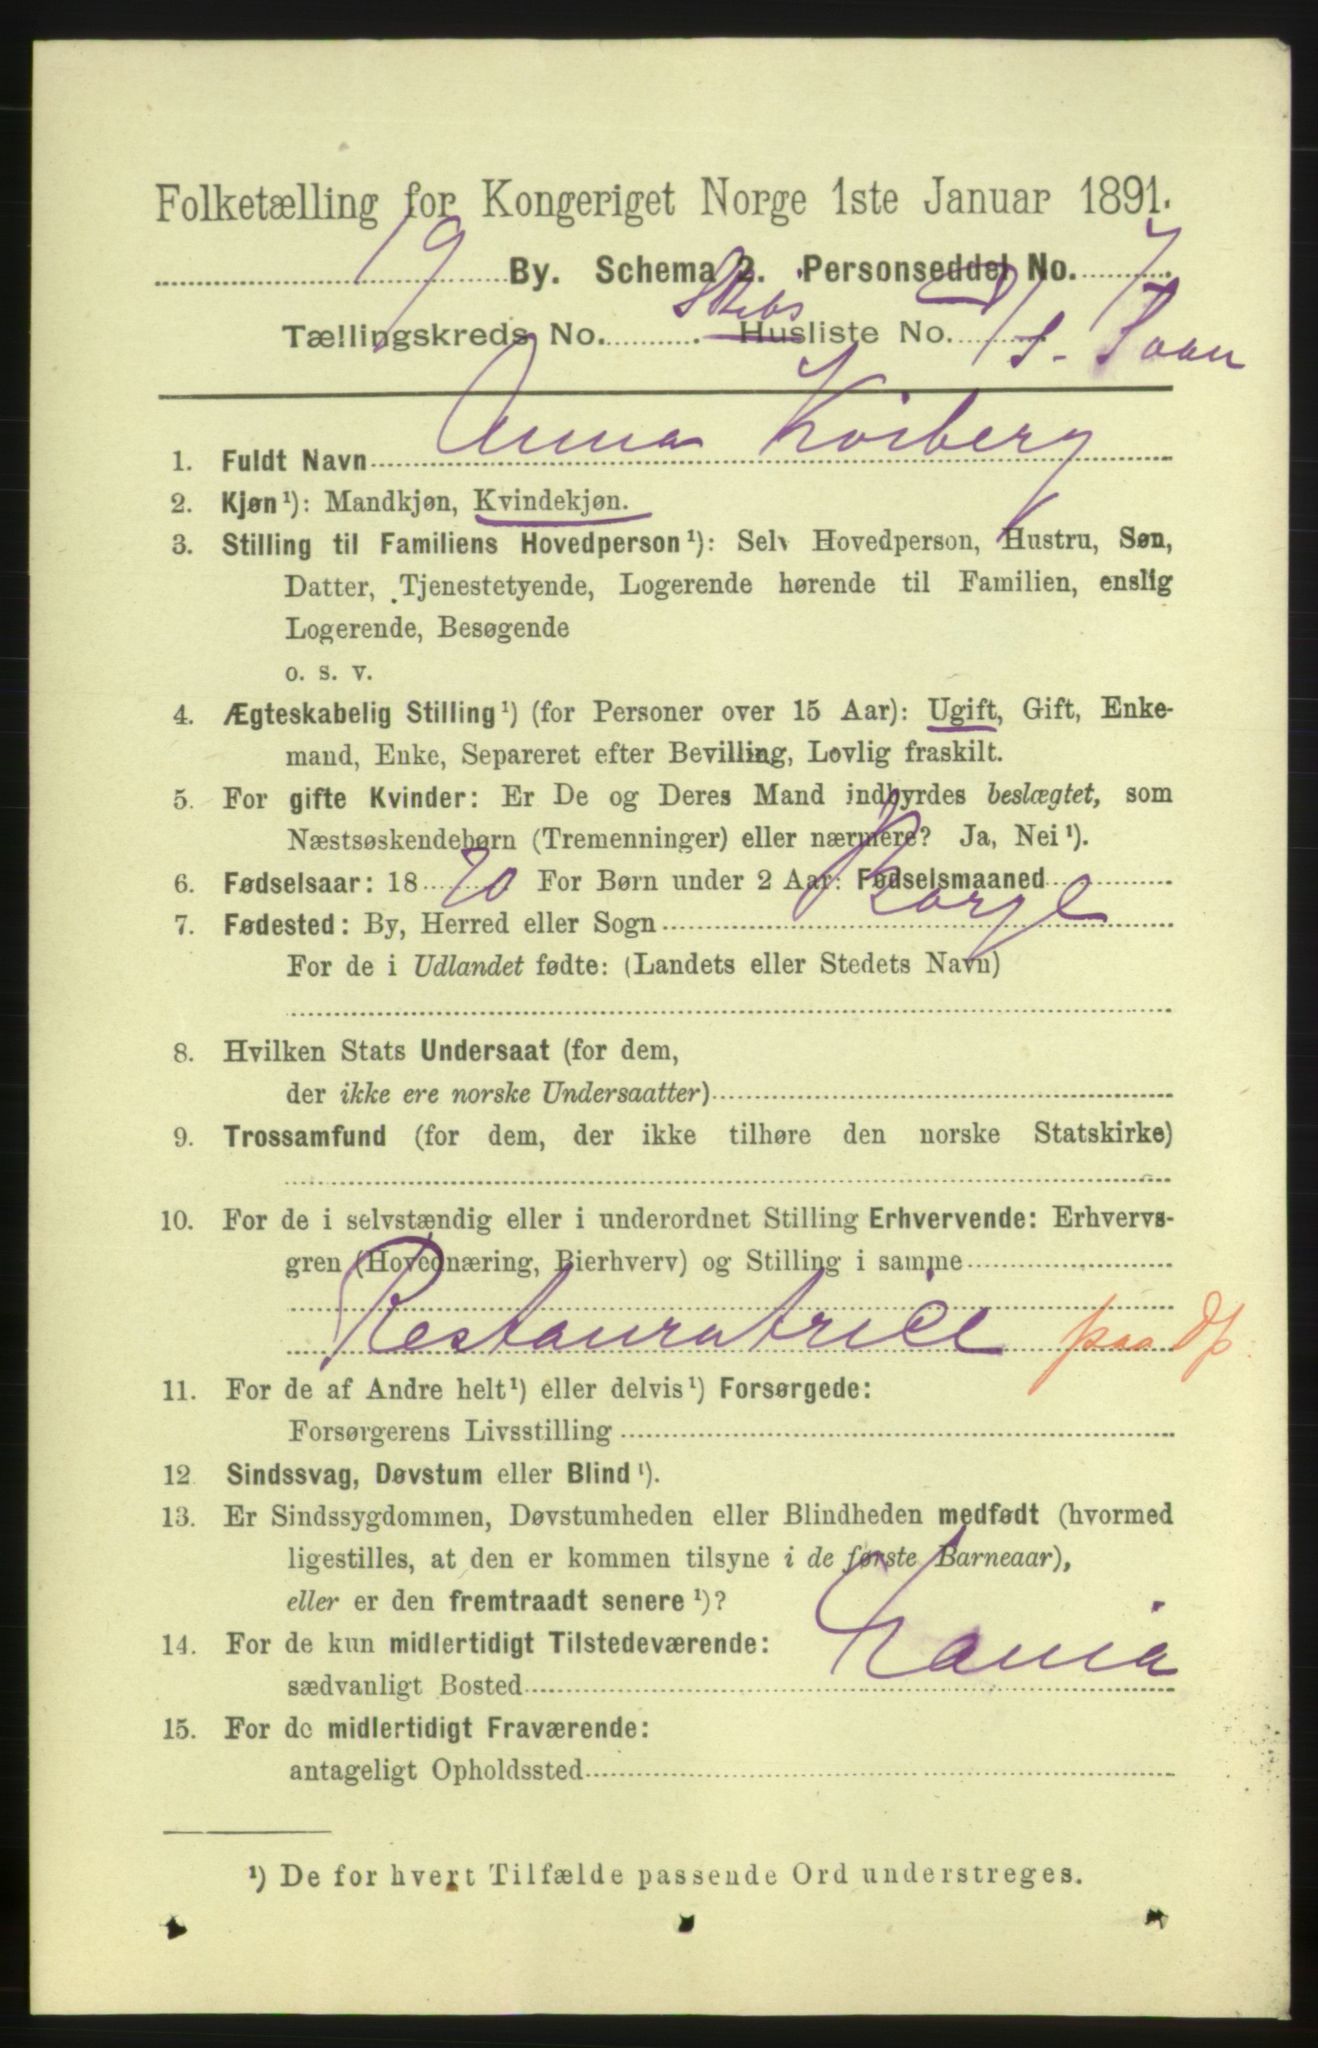 Folketælling for Kongeriget Norge 1ste Januar 1891.
19 By. Schema 2. Personseddel No. 7
Tællingskreds No. Skibs Husliste No. D/S.
1. Fuldt Navn Anna Koiberg
2. Kjøn¹): Mandkjøn, Kvindekjøn.
3. Stilling til Familiens Hovedperson¹): Selv Hovedperson, Hustru, Søn,
Datter, Tjenestetyende, Logerende hørende til Familien, enslig
Logerende, Besøgende
o. s. v.
4. Ægteskabelig Stilling¹) (for Personer over 15 Aar): Ugift, Gift, Enke-
mand, Enke, Separeret efter Bevilling, Lovlig fraskilt.
5. For gifte Kvinder: Er De og Deres Mand indbyrdes beslægtet, som
Næstsøskendebørn (Tremenninger) eller nærmere? Ja, Nei¹).
6. Fødselsaar: 1870 For Børn under 2 Aar: Fødselsmaaned
7. Fødested: By, Herred eller Sogn Borge
For de i Udlandet fødte: (Landets eller Stedets Navn)
8. Hvilken Stats Undersaat (for dem,
der ikke ere norske Undersaatter)
9. Trossamfund (for dem, der ikke tilhøre den norske Statskirke)
10. For de i selvstændig eller i underordnet Stilling Erhvervende: Erhvervs-
gren (Hovednæring, Bierhverv) og Stilling i samme
Restauratrice paa Dp.
11. For de af Andre helt¹) eller delvis¹) Forsørgede:
Forsørgerens Livsstilling
12 Sindssvag, Døvstum eller Blind¹).
13. Er Sindssygdommen, Døvstumheden eller Blindheden medfødt (hvormed
ligestilles, at den er kommen tilsyne i de første Barneaar),
eller er den fremtraadt senere¹)?
14. For de kun midlertidigt Tilstedeværende:
sædvanligt Bosted Xania
15. For de midlertidigt Fraværende:
antageligt Opholdssted
¹) De for hvert Tilfælde passende Ord understreges.